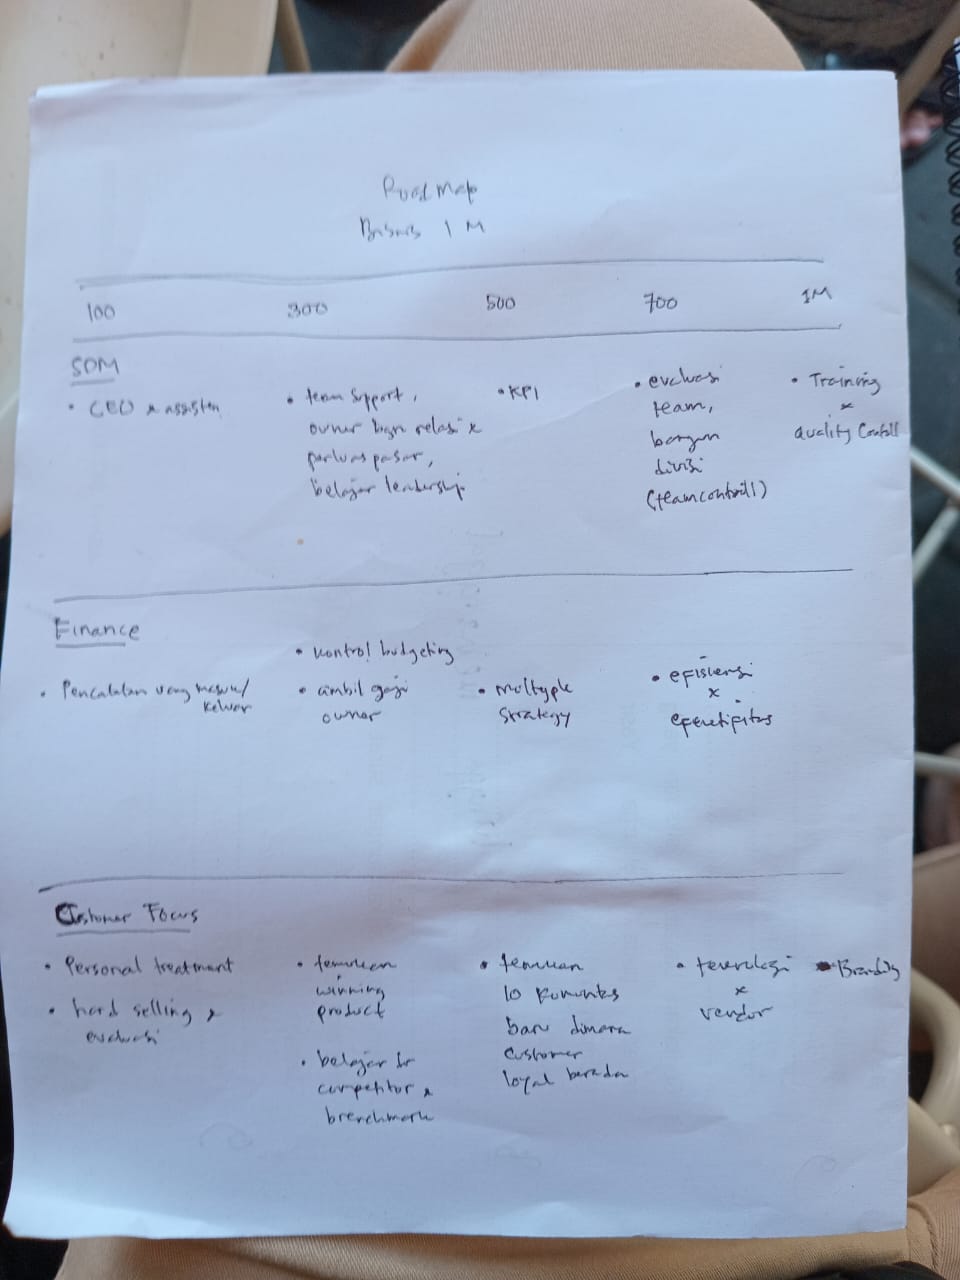 Road Map
Bisnis 1 M
100 300 500 700 1M
SDM
• CEO & assisten
• team support,
owner bgn relasi &
perluas pasar,
belajar leadership
• KPI
• evaluasi
team,
bangun
divisi
(team controll)
• Training
&
Quality Controll
Finance
• Pencatatan uang masuk/
keluar
• kontrol budgeting
• ambil gaji
owner
• multyple
strategy
• efisiensi
&
efektifitas
Customer Focus
• Personal treatment
• hard selling &
evaluasi
• temukan
winning
product
• belajar dr
competitor &
brenchmark
• temukan
10 komunitas
baru dimana
customer
loyal berada
• teknologi
&
vendor
• Branding